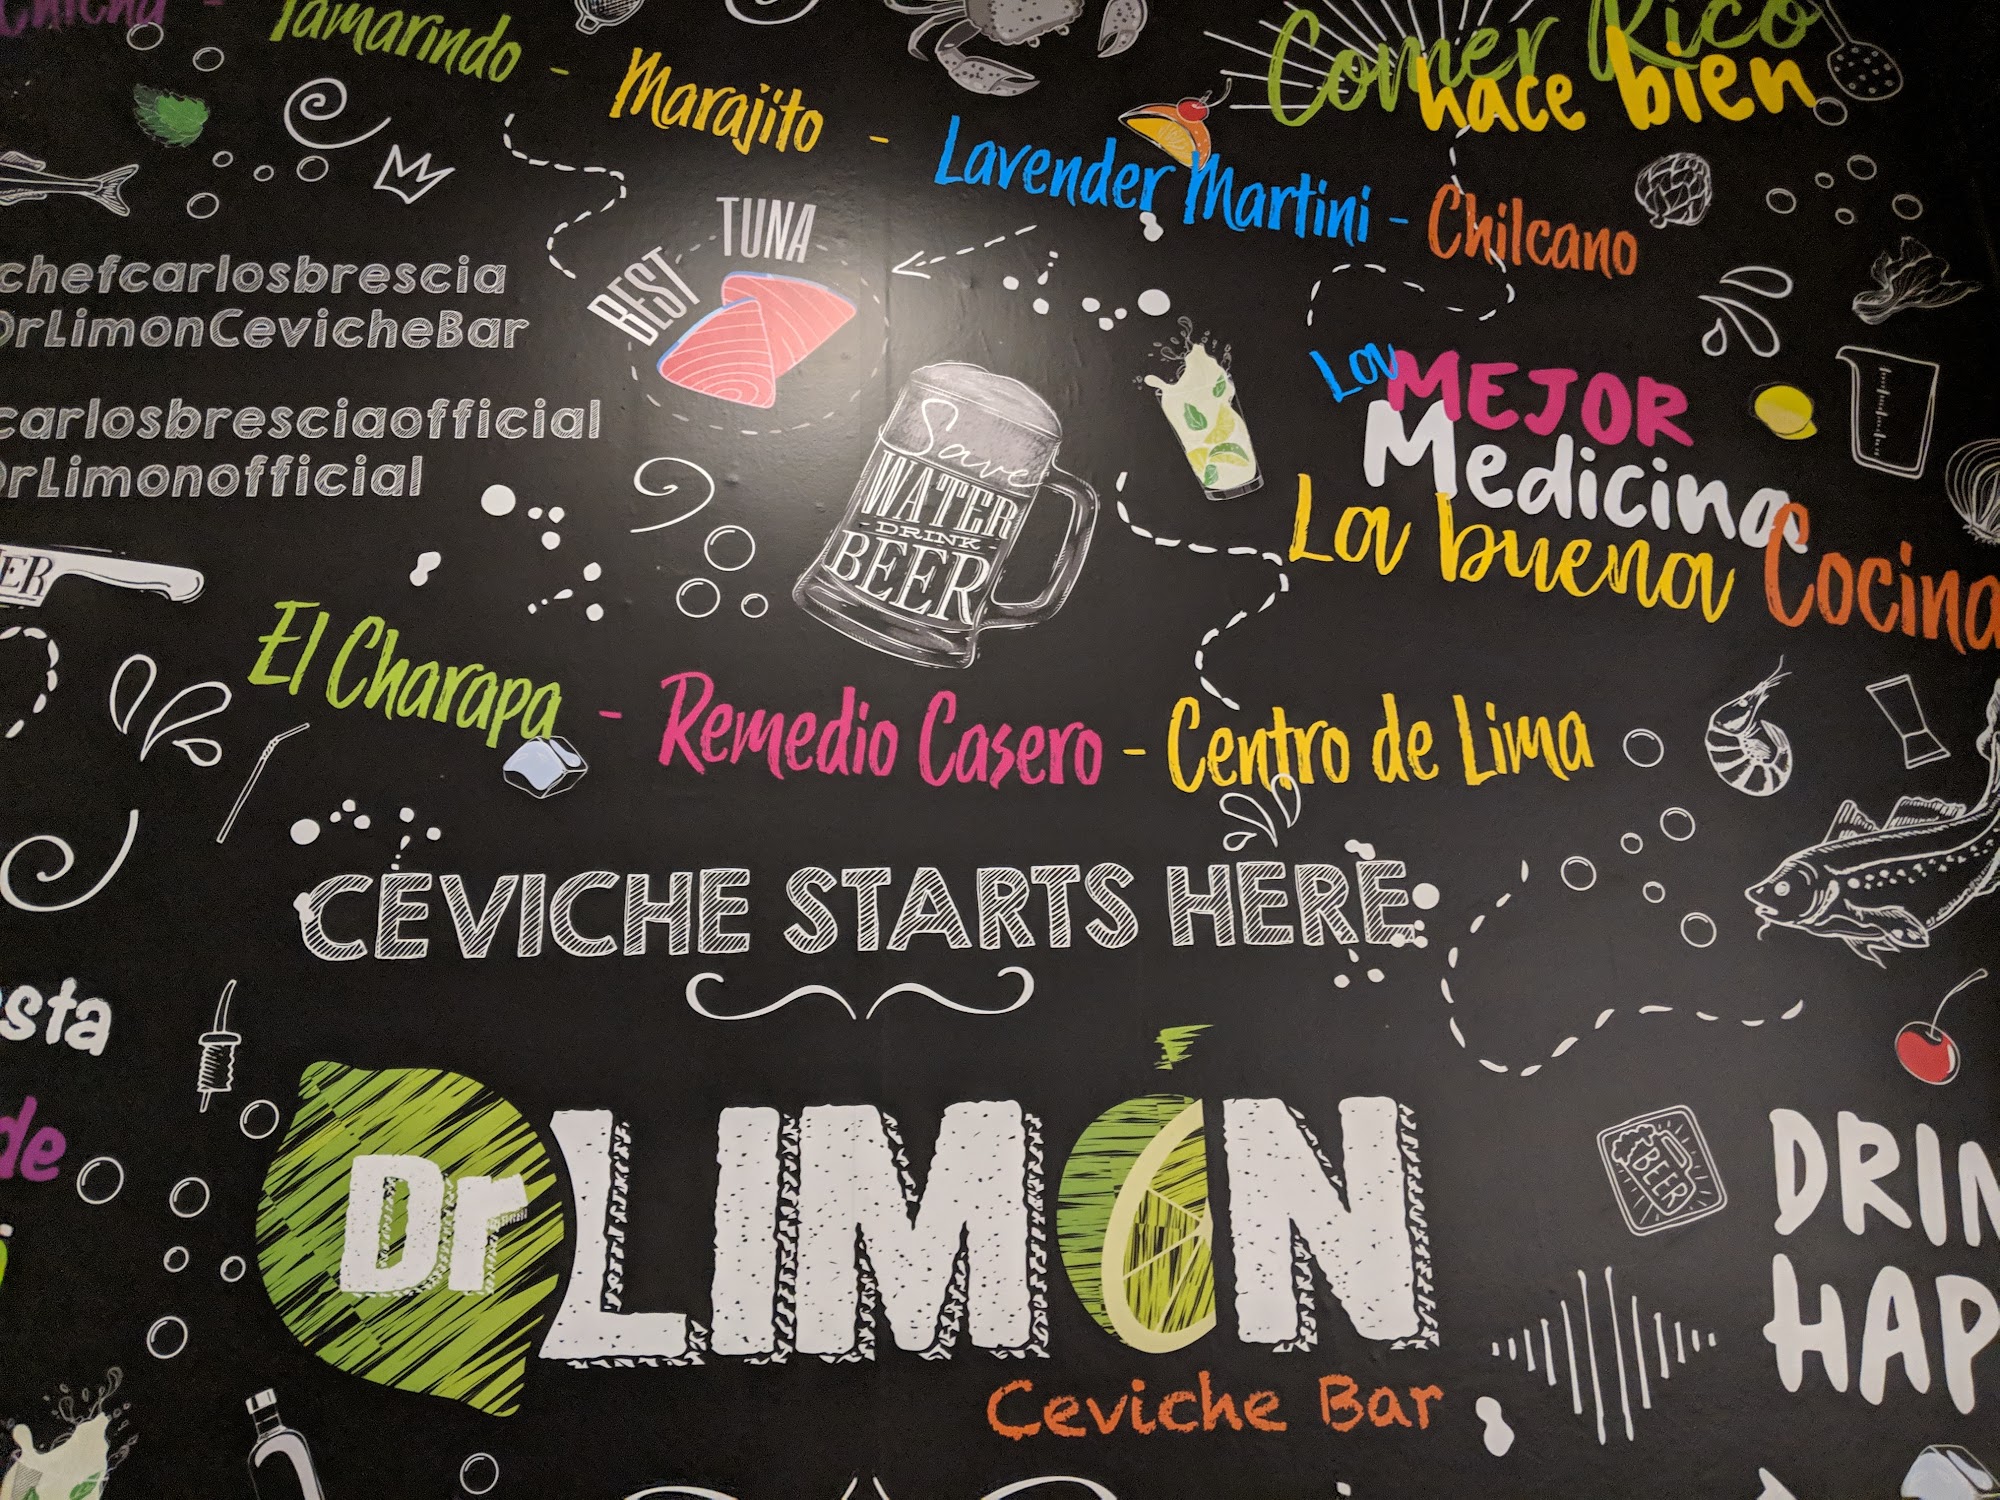 Chicha - Tamarindo - Marajito - Lavender Martini - Chilcano
Comer Rico
hace bien
BEST TUNA
chefcarlosbrescia
DrLimonCevicheBar
carlosbresciaofficial
DrLimonofficial
Save
WATER
- DRINK -
BEER
La MEJOR
Medicina
La buena Cocina
ER
El Charapa - Remedio Casero - Centro de Lima
CEVICHE STARTS HERE
sta
de
Dr LIMÓN
Ceviche Bar
BEER
DRIN
HAP